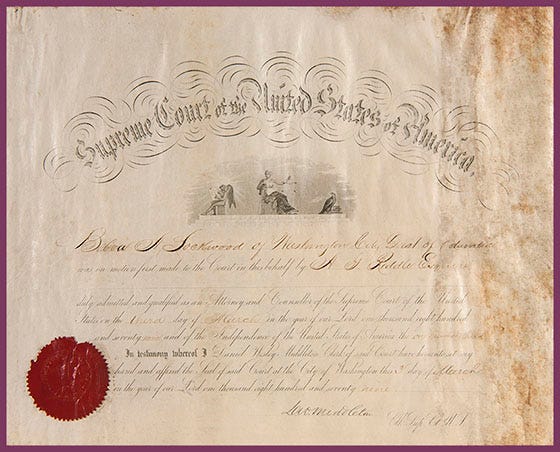 Supreme Court of the United States of America,
Belva A Lockwood of Washington City, Dist of Columbia
was on motion first made to the Court in this behalf by A. G. Riddle Esquire
duly admitted and qualified as an Attorney and Counsellor of the Supreme Court of the United
States on the third day of March in the year of our Lord one thousand eight hundred
and seventy nine and of the Independence of the United States of America the one hundred third
In testimony whereof I Daniel Wesley Middleton Clerk of said Court have hereunto set my
hand and affixed the Seal of said Court at the City of Washington this 3d day of March
in the year of our Lord one thousand eight hundred and seventy nine
D. W. Middleton
Clk Sup. Ct U.S.